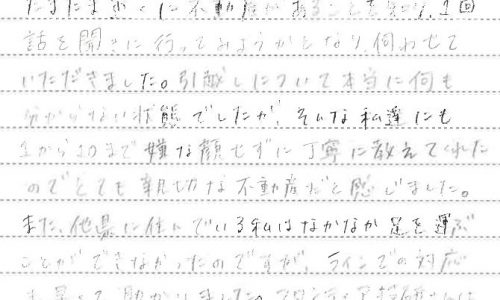 たまたま近くに不動産があることを知り、1回
話を聞きに行ってみようかとなり、伺わせて
いただきました。引越しについて本当に何も
分からない状態でしたが、そんな私達にも
1から10まで嫌な顔せずに丁寧に教えてくれた
のでとても親切な不動産だと感じました。
また、他県に住んでいる私はなかなか足を運ぶ
ことができなかったのですが、ラインでの対応
も早くて助かりました。